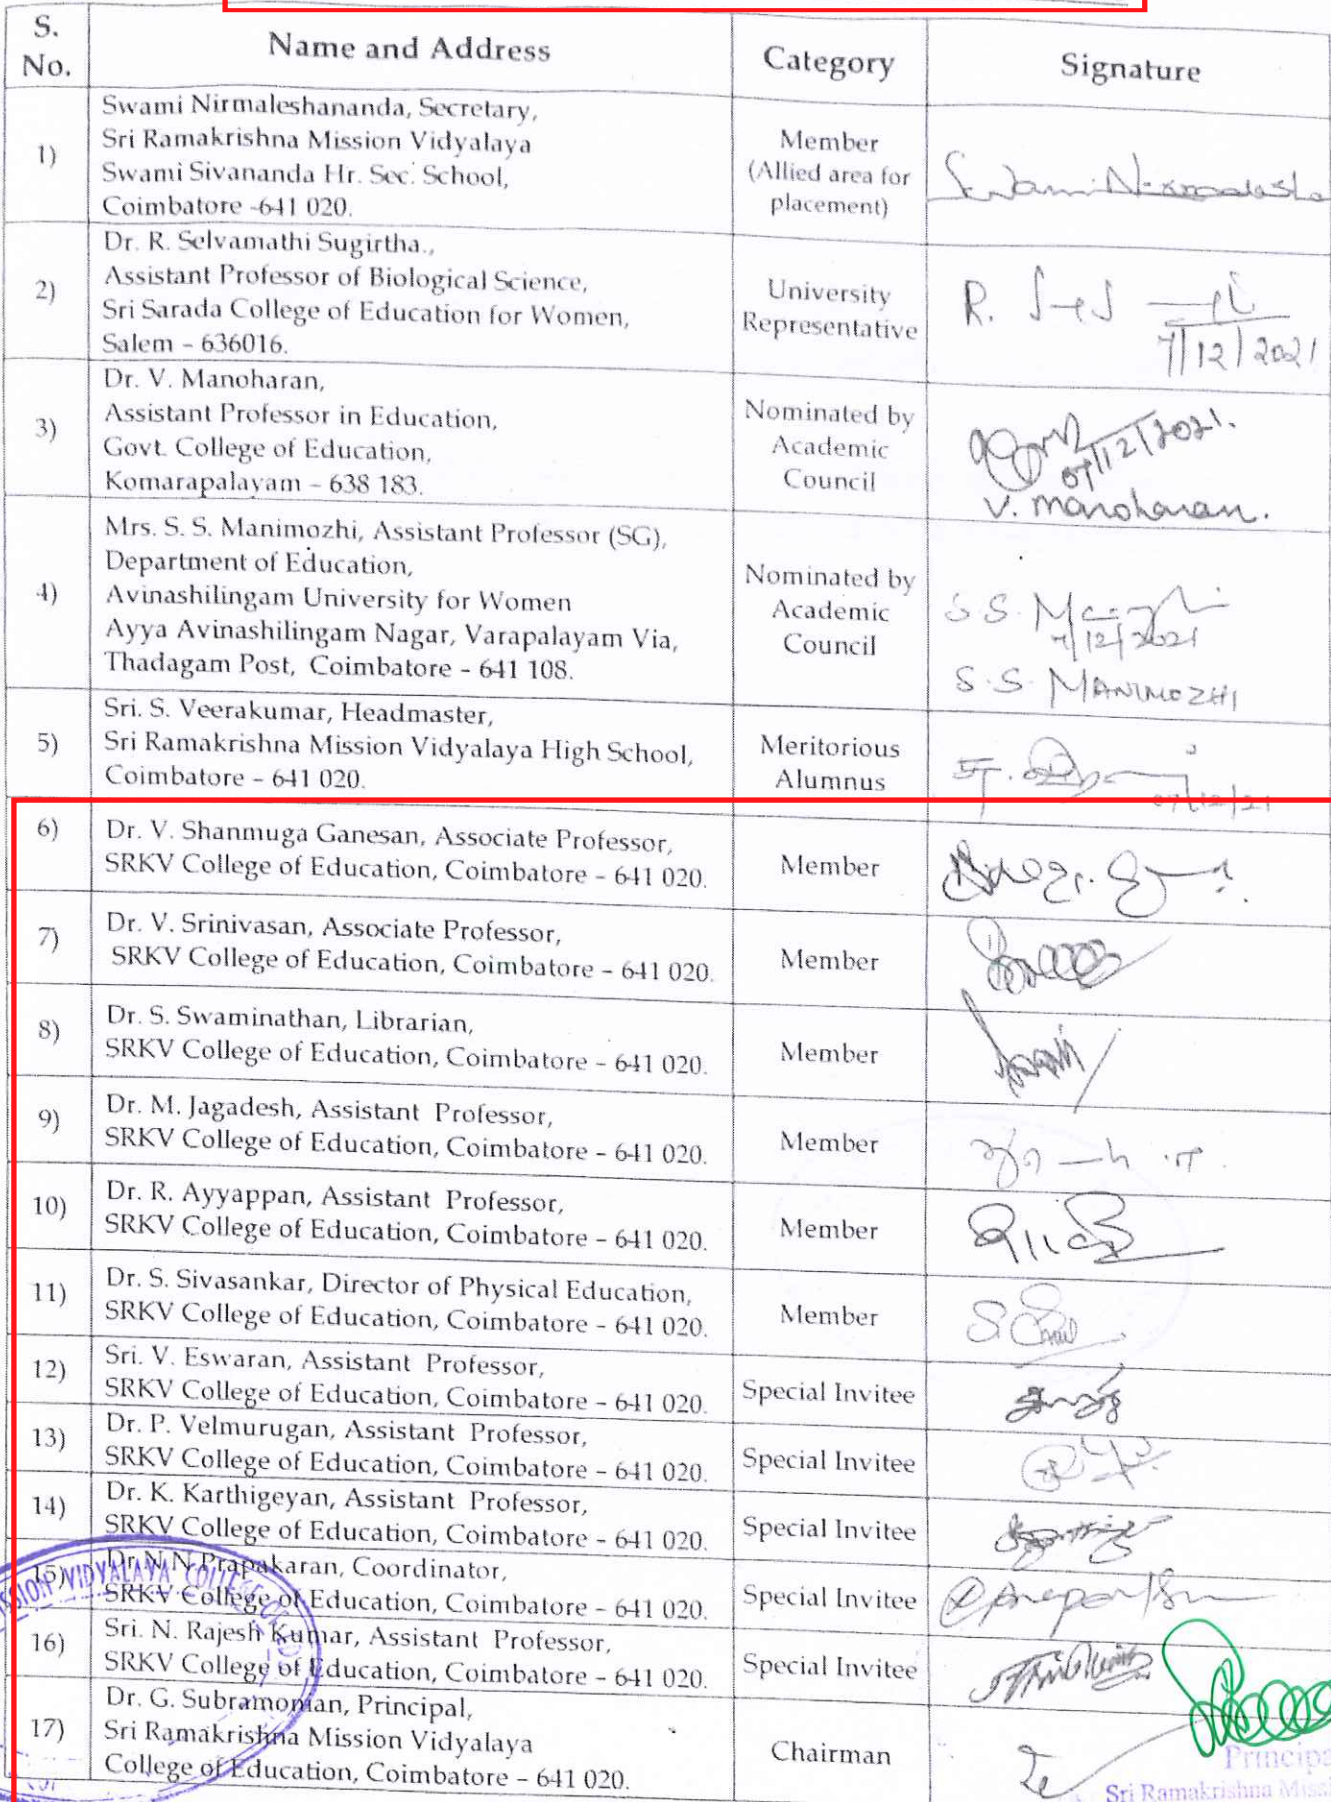 S.
No.
Name and Address
Category
Signature
1)
Swami Nirmaleshananda, Secretary,
Sri Ramakrishna Mission Vidyalaya
Swami Sivananda Hr. Sec. School,
Coimbatore -641 020.
Member
(Allied area for
placement)
2)
Dr. R. Selvamathi Sugirtha.,
Assistant Professor of Biological Science,
Sri Sarada College of Education for Women,
Salem – 636016.
University
Representative
R.
7/12/2021
3)
Dr. V. Manoharan,
Assistant Professor in Education,
Govt. College of Education,
Komarapalayam – 638 183.
Nominated by
Academic
Council
07/12/2021.
V. manoharan.
4)
Mrs. S. S. Manimozhi, Assistant Professor (SG),
Department of Education,
Avinashilingam University for Women
Ayya Avinashilingam Nagar, Varapalayam Via,
Thadagam Post, Coimbatore - 641 108.
Nominated by
Academic
Council
S.S.
7/12/2021
S.S. MANIMOZHI
5)
Sri. S. Veerakumar, Headmaster,
Sri Ramakrishna Mission Vidyalaya High School,
Coimbatore – 641 020.
Meritorious
Alumnus
07/12/21
6)
Dr. V. Shanmuga Ganesan, Associate Professor,
SRKV College of Education, Coimbatore – 641 020.
Member
7)
Dr. V. Srinivasan, Associate Professor,
SRKV College of Education, Coimbatore – 641 020.
Member
8)
Dr. S. Swaminathan, Librarian,
SRKV College of Education, Coimbatore – 641 020.
Member
9)
Dr. M. Jagadesh, Assistant Professor,
SRKV College of Education, Coimbatore – 641 020.
Member
10)
Dr. R. Ayyappan, Assistant Professor,
SRKV College of Education, Coimbatore – 641 020.
Member
11)
Dr. S. Sivasankar, Director of Physical Education,
SRKV College of Education, Coimbatore – 641 020.
Member
12)
Sri. V. Eswaran, Assistant Professor,
SRKV College of Education, Coimbatore – 641 020.
Special Invitee
13)
Dr. P. Velmurugan, Assistant Professor,
SRKV College of Education, Coimbatore – 641 020.
Special Invitee
14)
Dr. K. Karthigeyan, Assistant Professor,
SRKV College of Education, Coimbatore – 641 020.
Special Invitee
15)
Dr N N Prapakaran, Coordinator,
SRKV College of Education, Coimbatore – 641 020.
Special Invitee
16)
Sri. N. Rajesh Kumar, Assistant Professor,
SRKV College of Education, Coimbatore – 641 020.
Special Invitee
17)
Dr. G. Subramonian, Principal,
Sri Ramakrishna Mission Vidyalaya
College of Education, Coimbatore – 641 020.
Chairman
VIDYALAYA COLLEGE
Principa
Sri Ramakrishna Missi